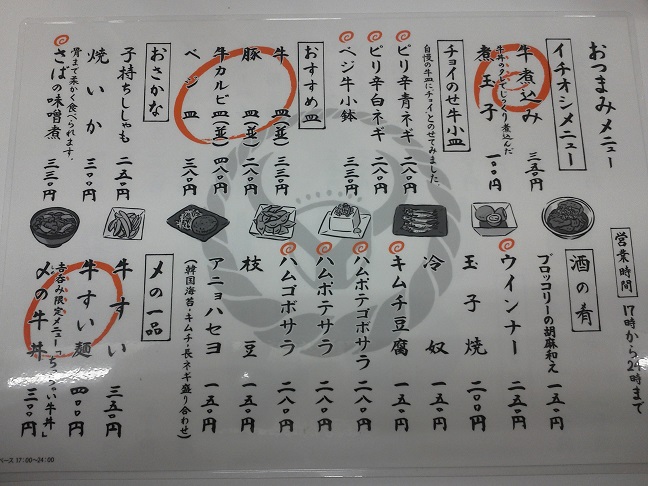 おつまみメニュー
イチオシメニュー
牛煮込み 三五〇円
牛丼のタレでじっくり煮込んだ
煮玉子 一〇〇円
チョイのせ牛小皿
自慢の牛皿にチョイとのせてみました。
ピリ辛青ネギ 二八〇円
ピリ辛白ネギ 二八〇円
ベジ牛小鉢 三三〇円
おすすめ皿
牛皿(並) 三三〇円
豚皿(並) 二八〇円
牛カルビ皿(並) 四八〇円
ベジ皿 三八〇円
おさかな
子持ちししゃも 二五〇円
焼いか 三八〇円
骨まで柔かく食べられます。
さばの味噌煮 三三〇円
営業時間 17時から24時まで
酒の肴
ブロッコリーの胡麻和え 一五〇円
ウインナー 二五〇円
玉子焼 二〇〇円
冷奴 一五〇円
キムチ豆腐 一五〇円
ハムポテゴボサラ 二八〇円
ハムポテサラ 二八〇円
ハムゴボサラ 二八〇円
枝豆 一五〇円
アニョハセヨ 一五〇円
(韓国海苔・キムチ・長ネギ盛り合わせ)
〆の一品
牛すい 三五〇円
牛すい麺 四〇〇円
吉呑み限定メニュー「ちっちゃい牛丼」
〆の牛丼 三〇〇円
ベース 17:00〜24:00